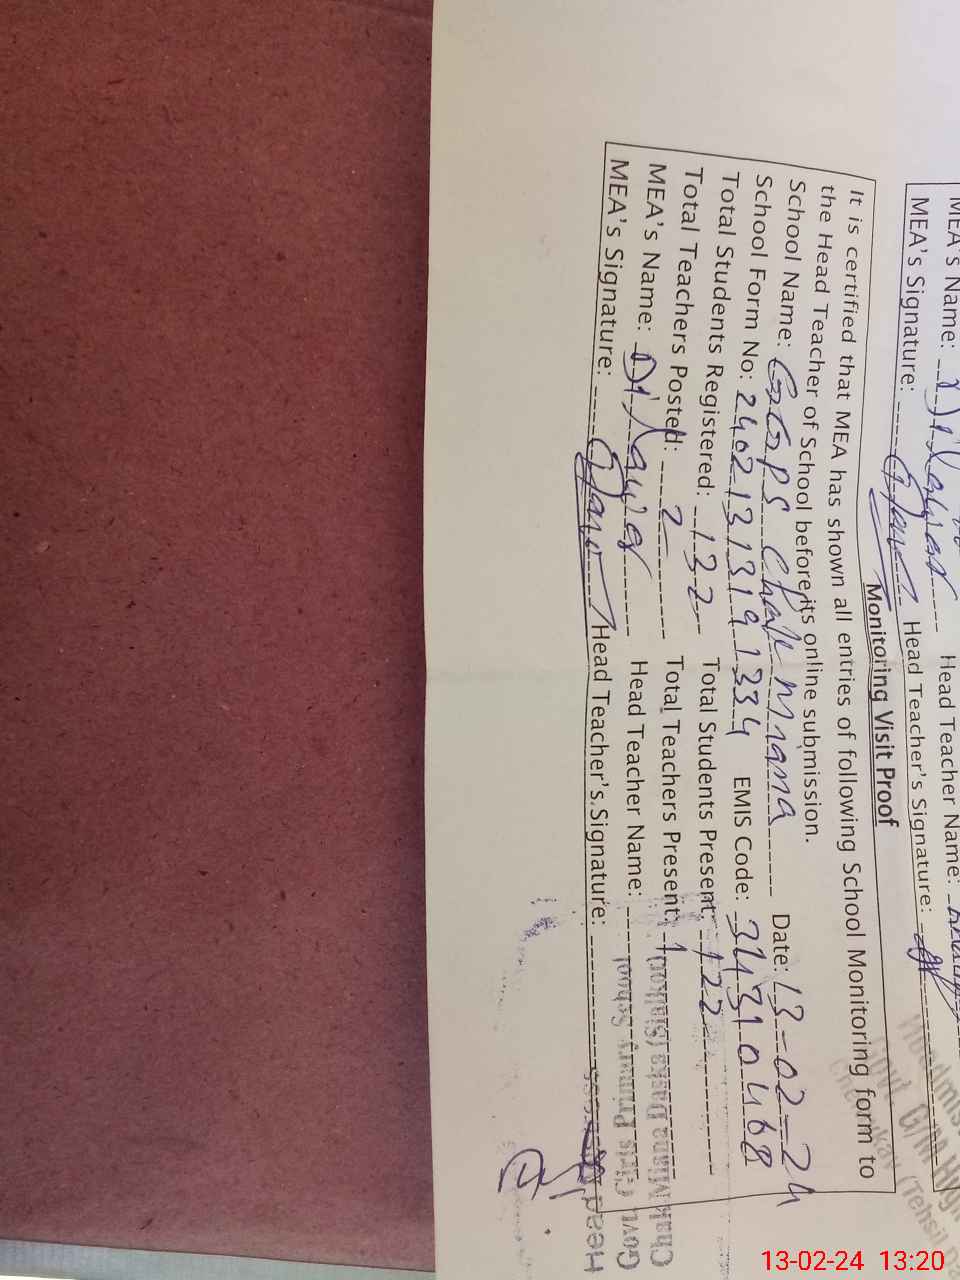 MEA's Name: Dilawer Head Teacher Name:
MEA's Signature: Head Teacher's Signature:
Monitoring Visit Proof
It is certified that MEA has shown all entries of following School Monitoring form to
the Head Teacher of School before its online submission.
School Name: GGPS Chak Miana Date: 13-02-24
School Form No: 24021313191334 EMIS Code: 34310468
Total Students Registered: 132 Total Students Present: 122
Total Teachers Posted: 2 Total Teachers Present: 1
MEA's Name: Dilawer Head Teacher Name:
MEA's Signature: Head Teacher's Signature:
Head
Govt. Girls Primary School
Chak Miana Daska (Sialkot)
13-02-24 13:20